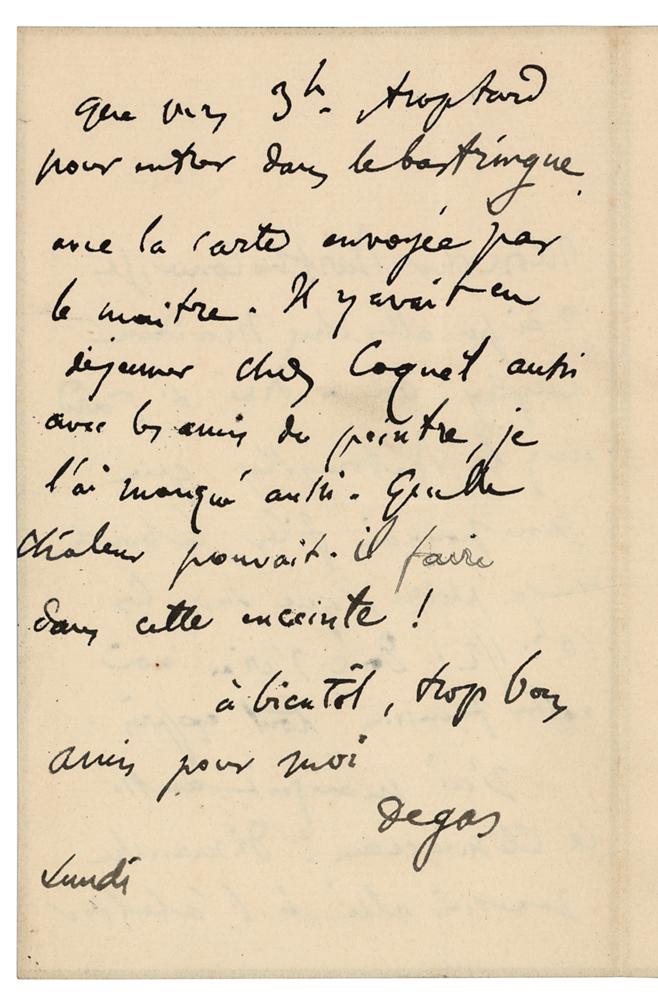 que vers 3h. trop tard
pour entrer dans le bastringue
avec la carte envoyée par
le maitre. Il y avait eu
déjeuner chez Coquet aussi
avec les amis du peintre, je
l'ai manqué aussi. Quelle
chaleur pouvait-il faire
dans cette enceinte !
à bientôt, trop bons
amis pour moi
Degas
Lundi